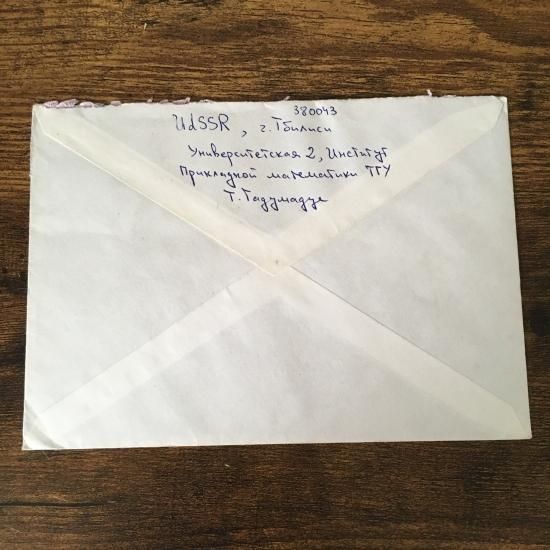 380043
UdSSR, г. Тбилиси
Университетская 2, Институт
Прикладной математики ТГУ
Т. Гадумадзе